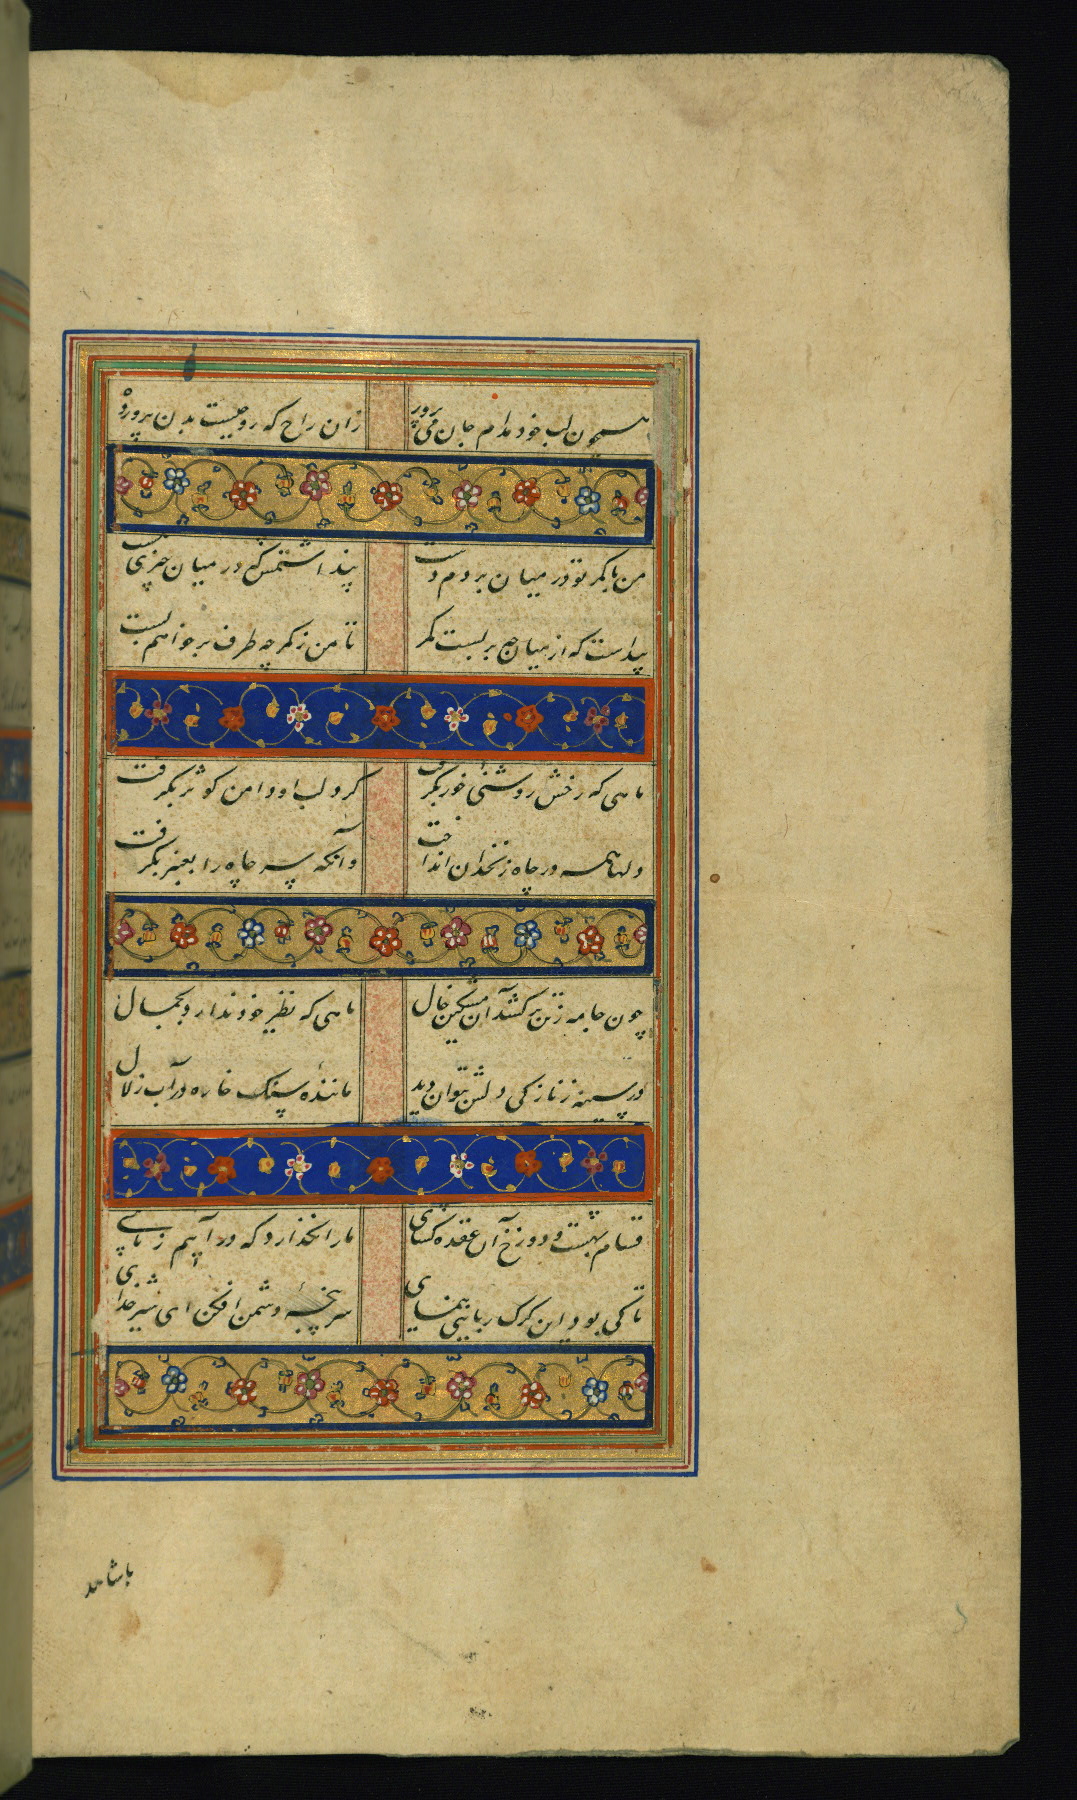 همچون لب خود مدام جان می‌پرور زان راح که روحیست بدن پرورده
من با کمر تو در میان بردم دست پنداشتمش که در میان چیزی هست
پیداست که از میان چه بربست کمر تا من ز کمر چه طرف بر خواهم بست
ماهی که رخش روشنی خور بگرفت گرد لب او دامن کوثر بگرفت
دلها همه در چاه زنخدان انداخت وآنکه سر چاه را بعنبر بگرفت
چون جامه ز تن برکشد آن مشکین خال ماهی که نظیر خود ندارد بجمال
در سینه ز نازکی دلش بتوان دید ماننده سنگ خاره در آب زلال
قسام بهشت و دوزخ آن عقده کشای ما را نگذارد که درآییم ز پای
تا کی بود این گرگ ربایی بنمای سرپنجه دشمن افکن ای شیر خدای
با شاهد